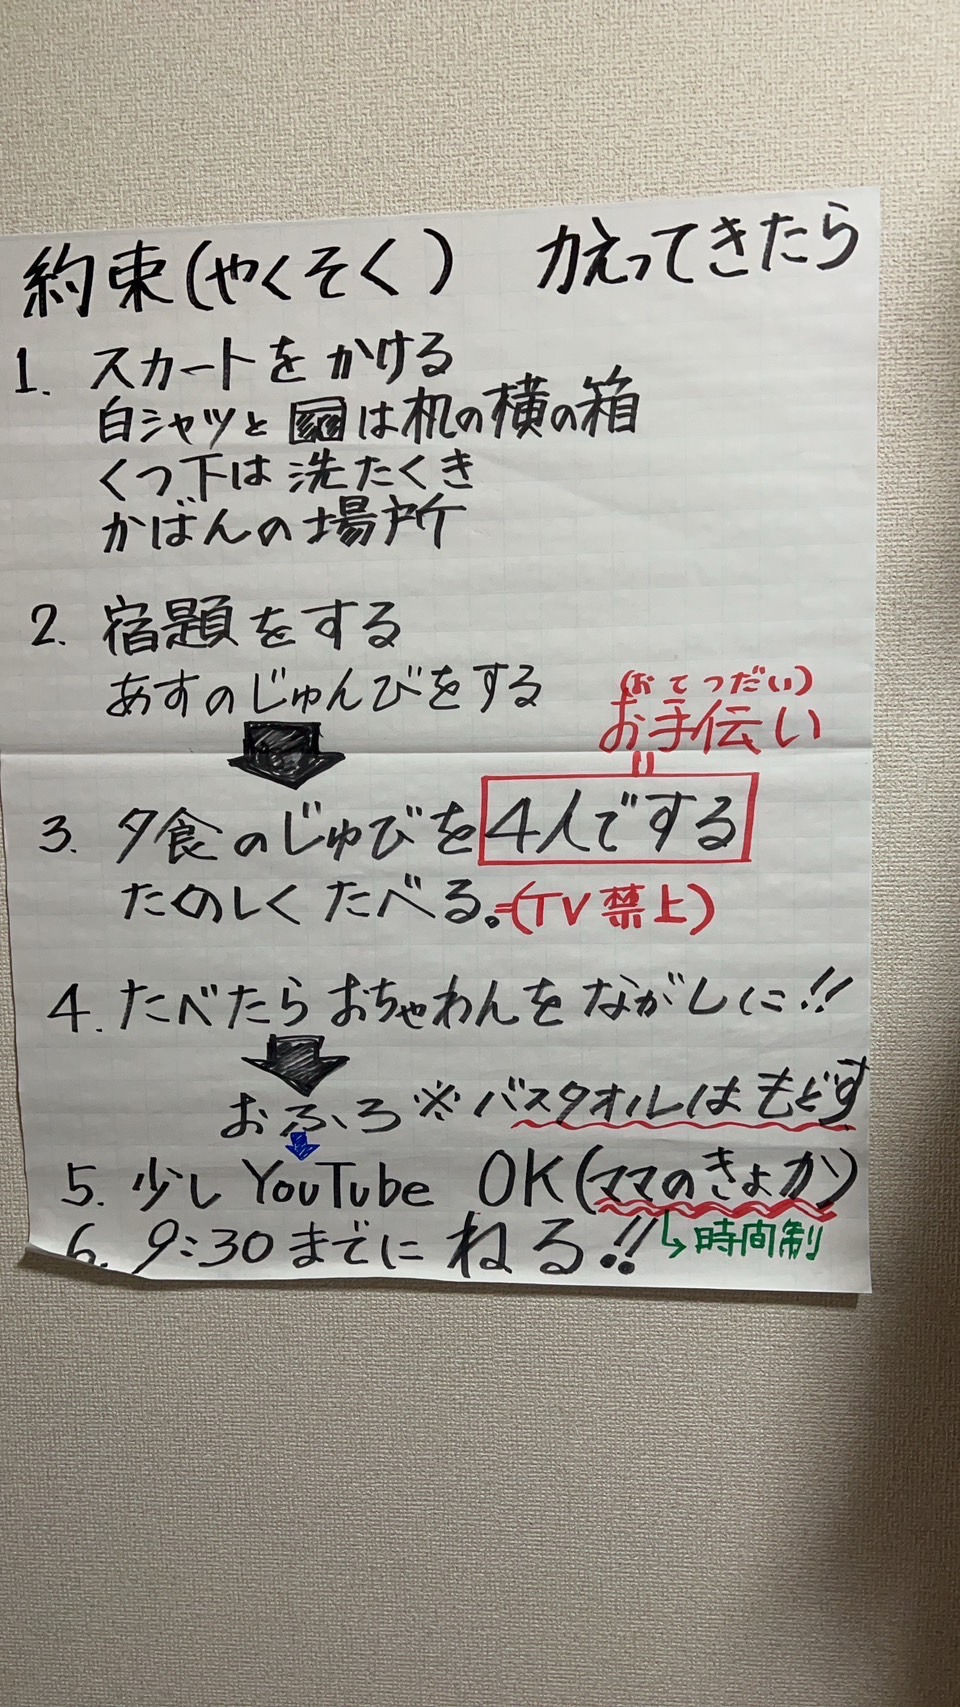 約束(やくそく) かえってきたら
1. スカートをかける
白シャツと は机の横の箱
くつ下は洗たくき
かばんの場所
2. 宿題をする
あすのじゅんびをする
(おてつだい)
お手伝い
3. 夕食のじゅびを4人でする
たのしくたべる。=(TV禁止)
4. たべたらおちゃわんをながしに!!
おふろ ※バスタオルはもどす
5. 少しYouTube OK(ママのきょか)
↳時間制
6. 9:30までにねる!!